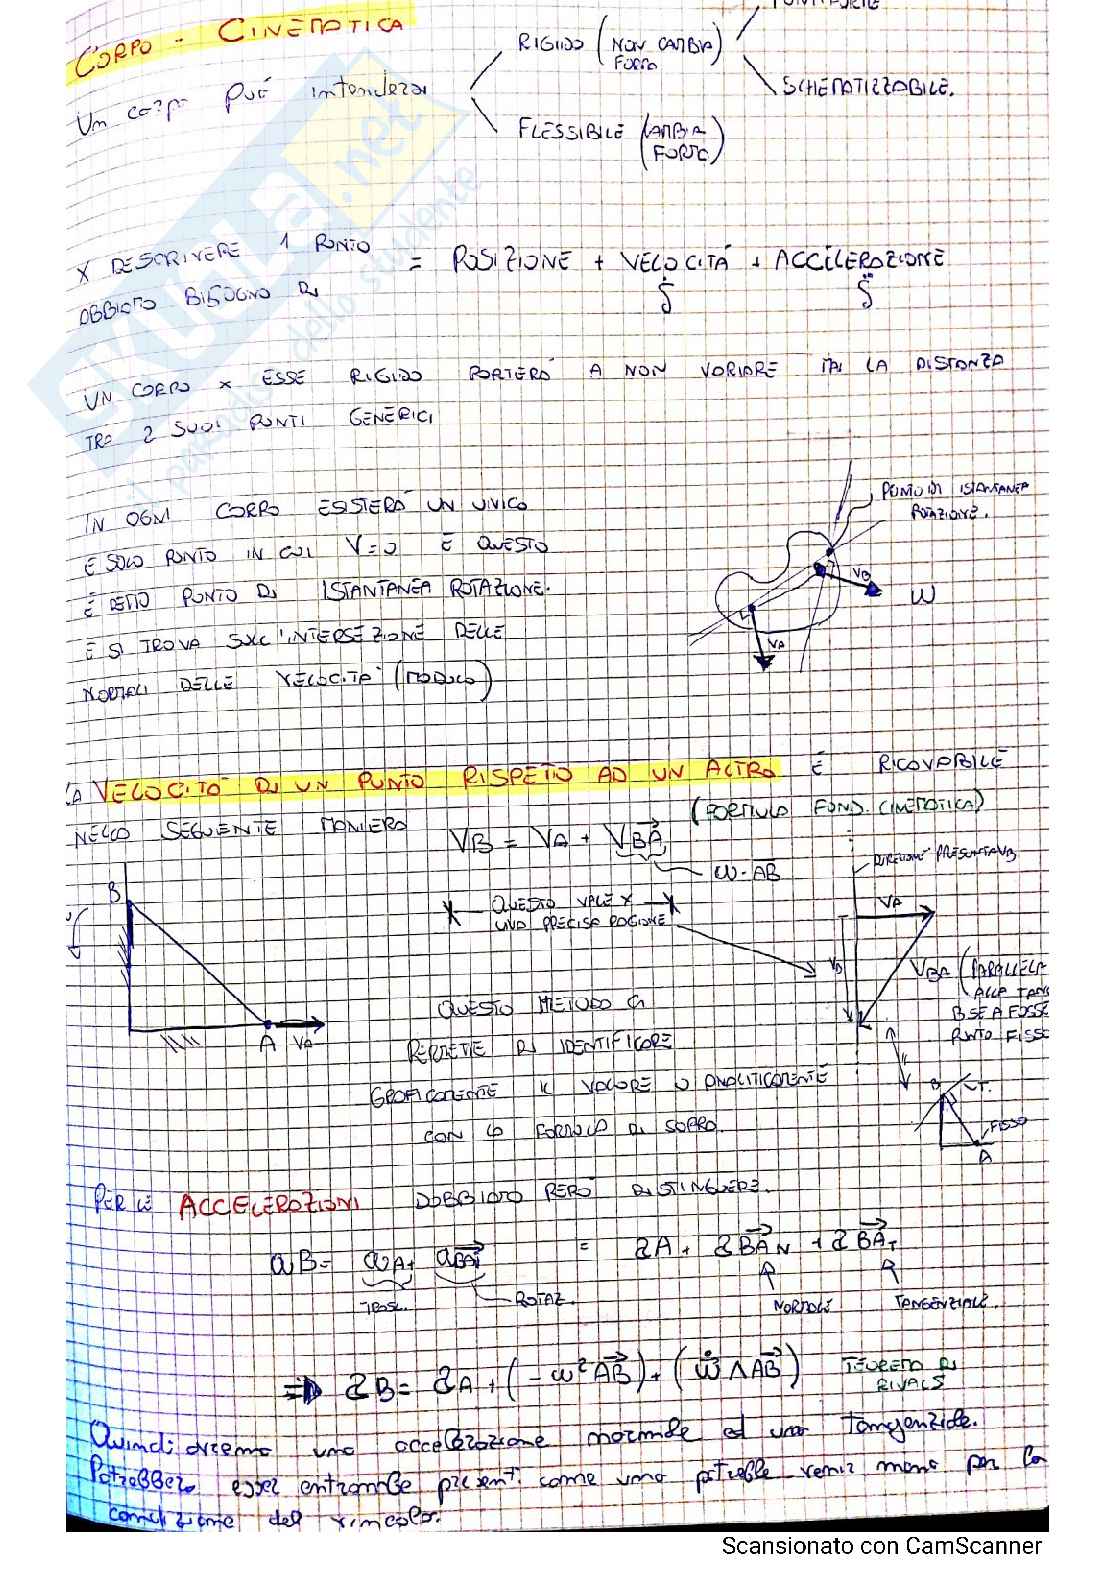 CORPO - CINEMATICA
RIGIDO (NON CAMBIA
FORMA)
SCHEMATIZZABILE.
Un corpo può intendersi
FLESSIBILE (CAMBIA
FORMA)
X DESCRIVERE 1 PUNTO
ABBIAMO BISOGNO DI
= POSIZIONE + VELOCITÁ + ACCELERAZIONE
Ṡ S̈
UN CORPO X ESSE RIGIDO PORTERÁ A NON VARIARE MAI LA DISTANZA
TRA 2 SUOI PUNTI GENERICI
IN OGNI CORPO ESISTERÁ UN UNICO
E SOLO PUNTO IN CUI V=0 E QUESTO
É DETTO PUNTO DI ISTANTANEA ROTAZIONE.
E SI TROVA SULL'INTERSEZIONE DELLE
NORMALI DELLE VELOCITÁ (MODULO)
PUNTO DI ISTANTANEA
ROTAZIONE.
VB
W
VA
LA VELOCITÁ DI UN PUNTO RISPETO AD UN ALTRO É RICAVABILE
NELLA SEGUENTE MANIERA
VB = VA + VBA
(FORMULA FOND. CINEMATICA)
ω · AB
QUESTO VALE X
UNA PRECISA RAGIONE
DIREZIONE PRESUNTA VB
VA
VB
VBA (PARALLELA
ALLA TANG
B SE A FOSSE
PUNTO FISSO
B
A VA
QUESTO METODO CI
PERMETTE DI IDENTIFICARE
GRAFICAMENTE IL VALORE O ANALITICAMENTE
CON LA FORMULA DI SOPRA.
B T.
FISSO
A
PER LE ACCELERAZIONI DOBBIAMO PERÓ DISTINGUERE.
aB = aA + aBA = aA + aBA N + aBA T
TRASL. ROTAZ. NORMALE TANGENZIALE.
=> aB = aA + (- ω² AB) + (ω̇ Λ AB) TEOREMA DI
RIVALS
Quindi avremo una accelerazione normale ed una tangenziale.
Potrebbero esser entrambe presenti come una potrebbe venir meno per la
condizione del vincolo.
SKUOLA.net
il paradiso dello studente
Scansionato con CamScanner